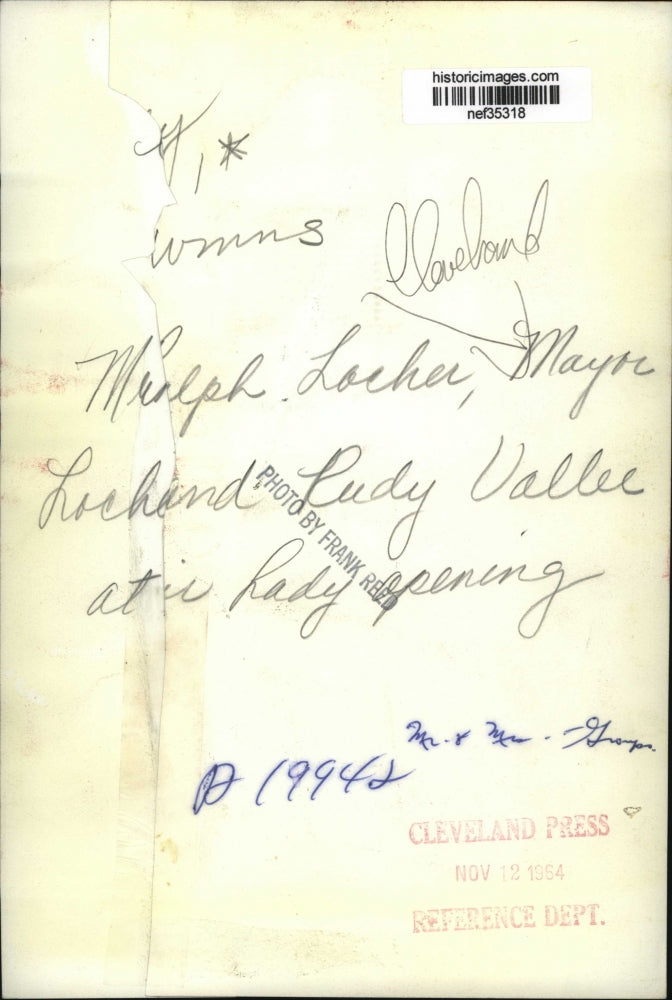 historicimages.com
nef35318
, *
wmns
Cleveland
Mralph Locher, Mayor
Lochand Rudy Vallee
at Lady opening
PHOTO BY FRANK REED
Mr. & Mrs. - Groups.
P 19942
CLEVELAND PRESS
NOV 12 1964
REFERENCE DEPT.